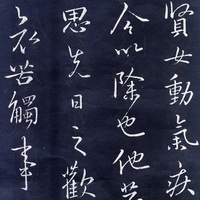 賢女動氣疾
今以除也他
思先日之歡
哀苦觸事